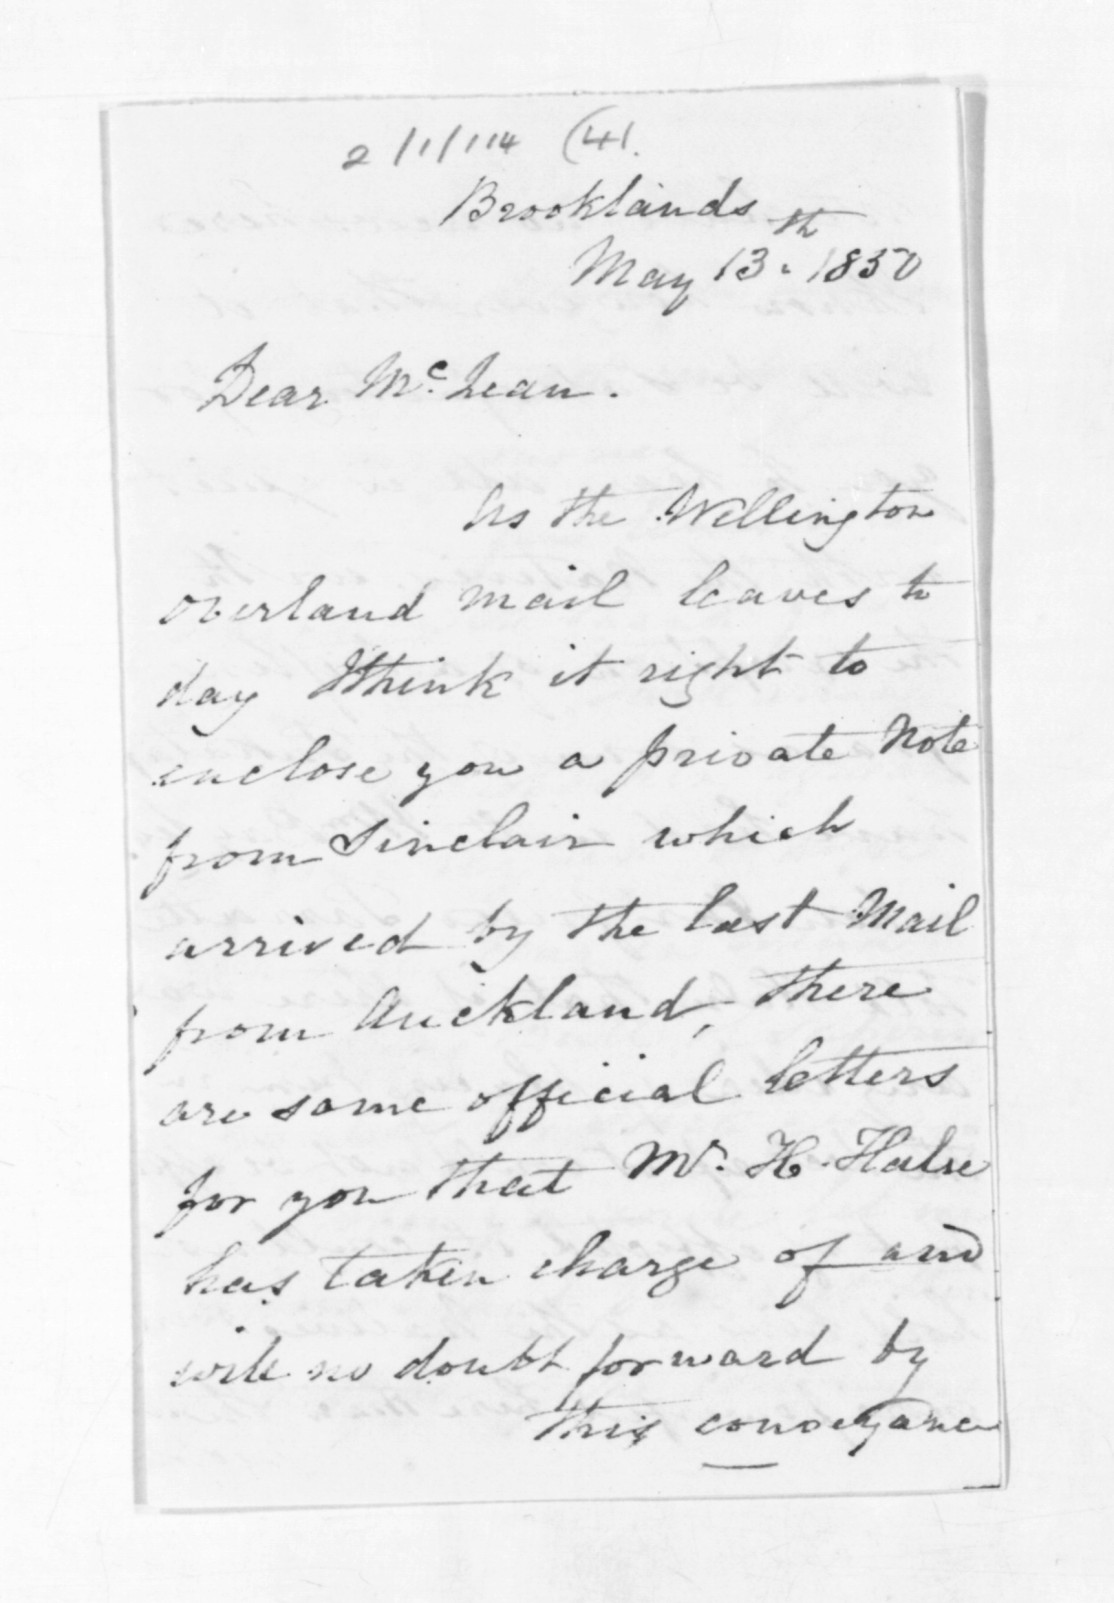 2/1/114 (41.
Brooklands
May 13th. 1850
Dear McLean.
As the Wellington
overland mail leaves to
day I think it right to
enclose you a private Note
from Sinclair which
arrived by the last Mail
from Auckland, there
are some official letters
for you that Mr. H. Halse
has taken charge of and
will no doubt forward by
this conveyance